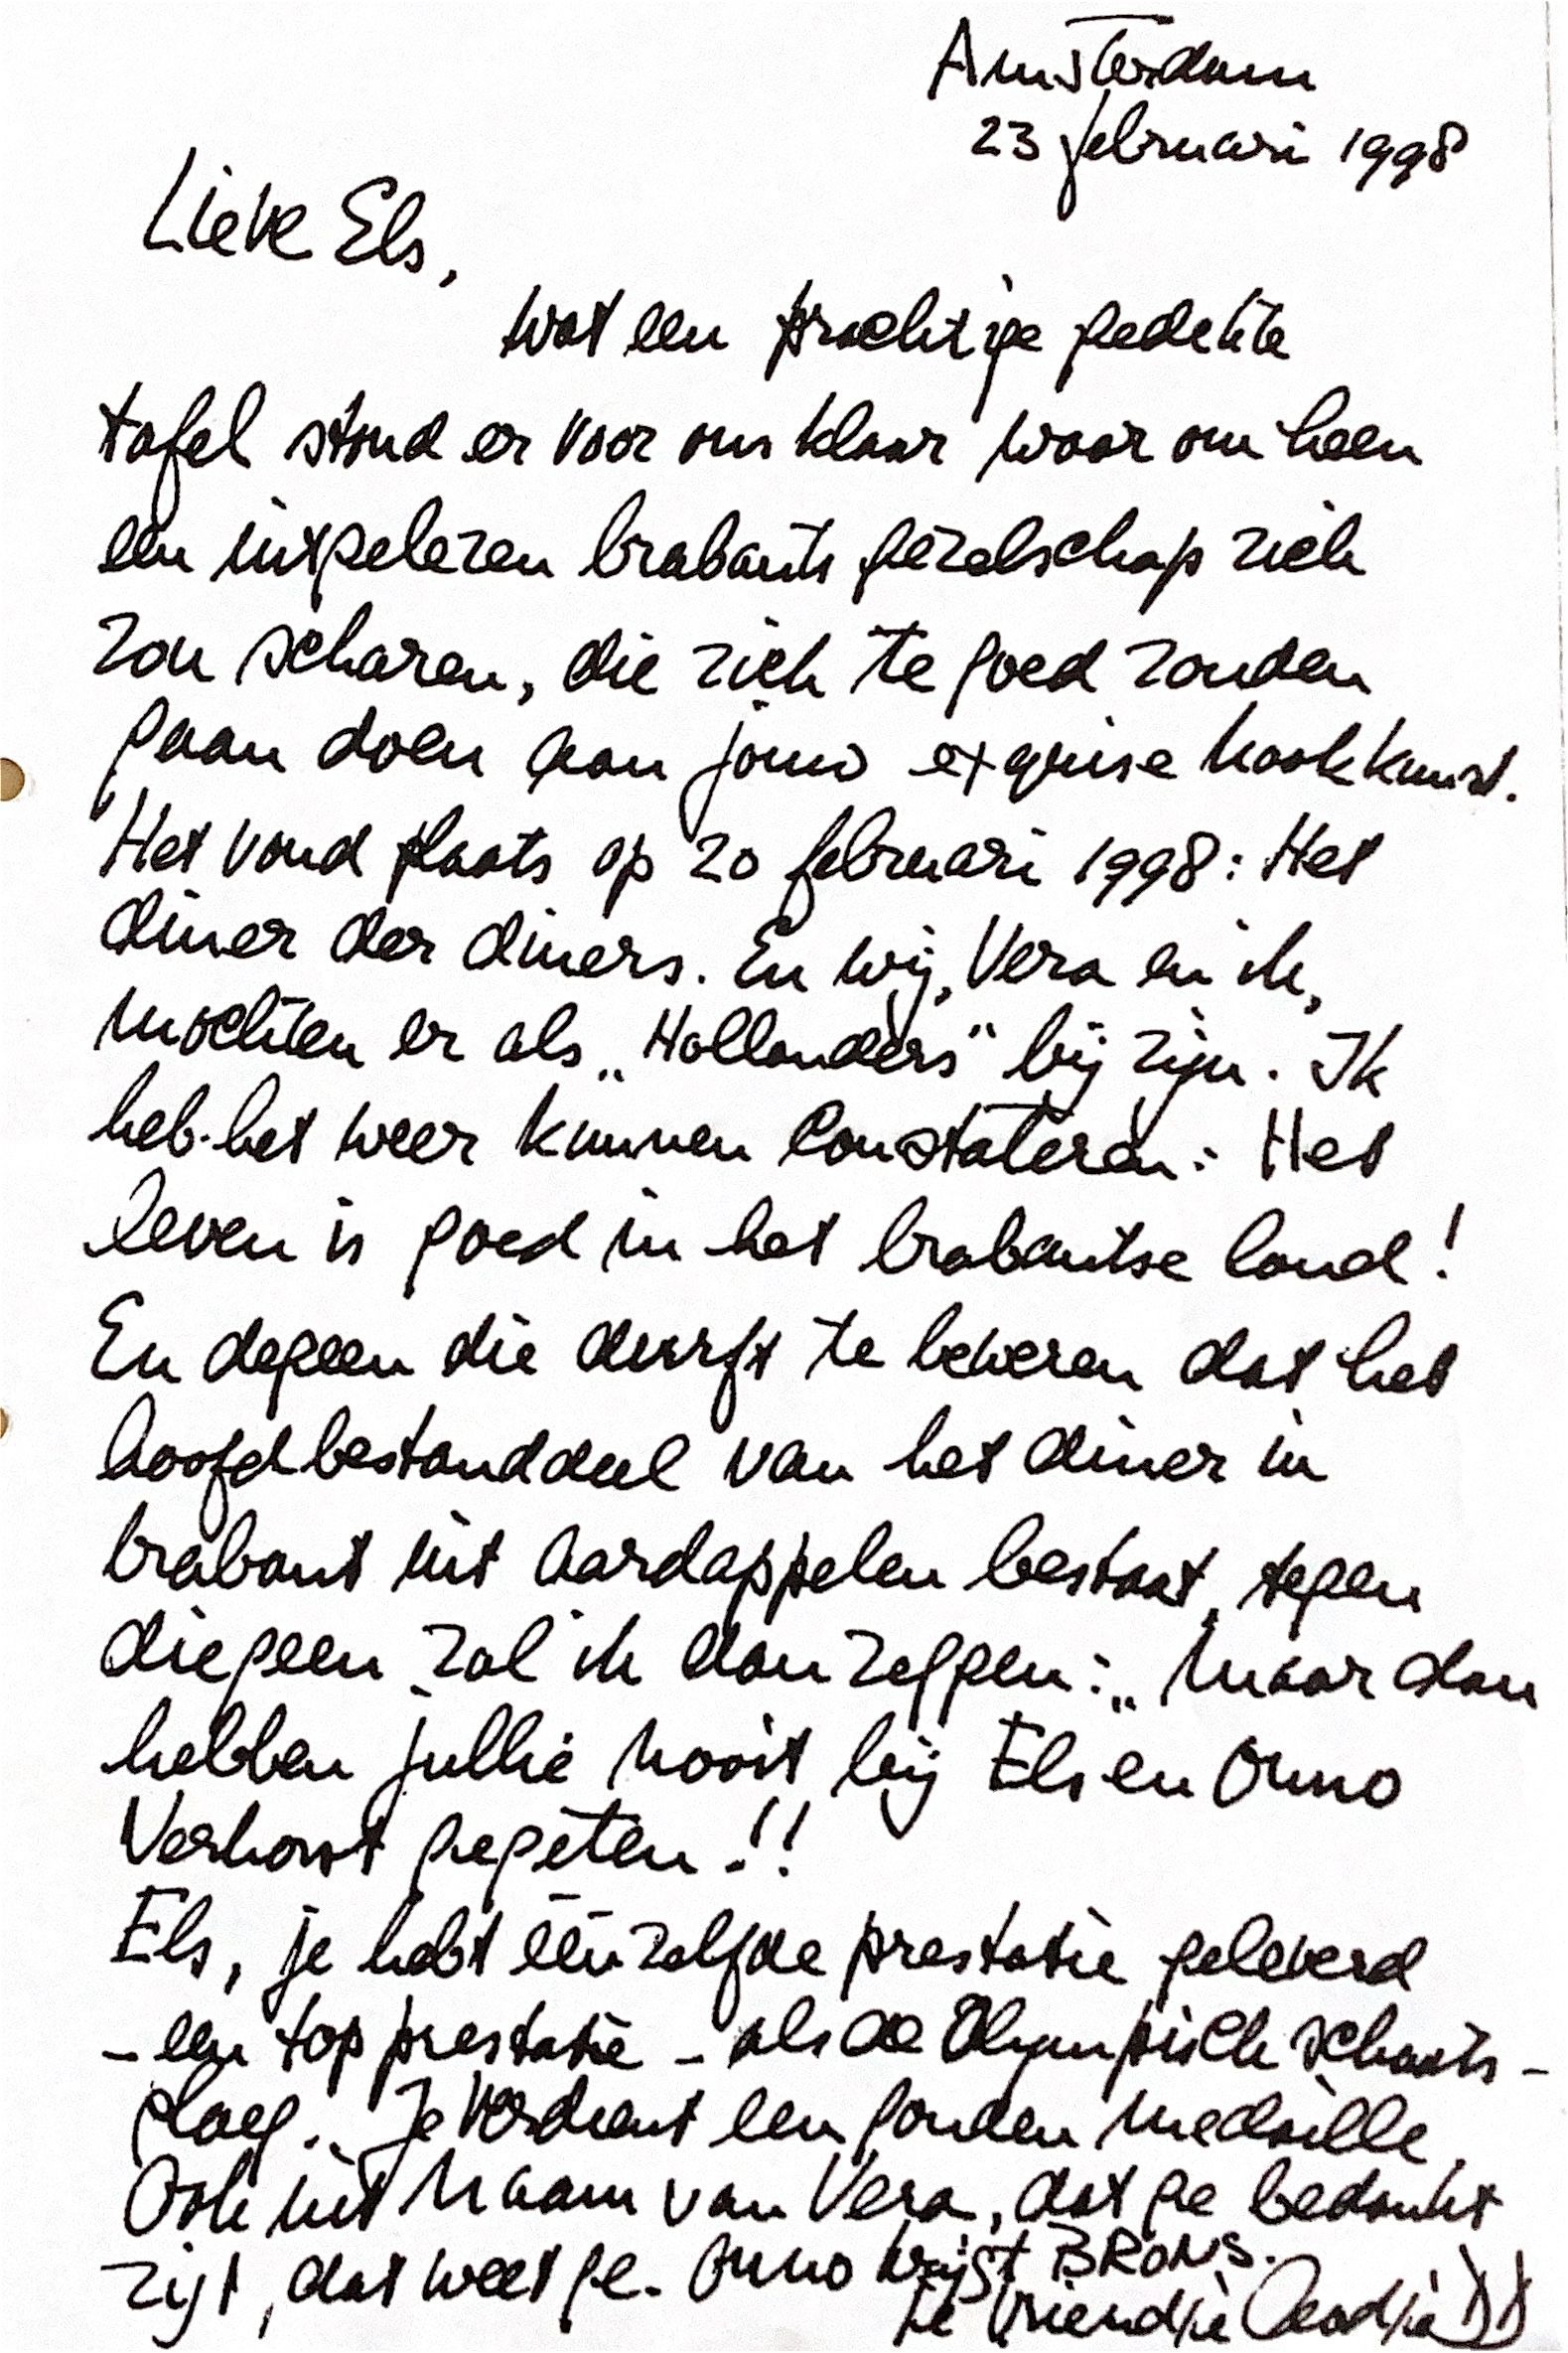 Amsterdam
23 februari 1998
Lieve Els,
Wat een prachtige gedekte
tafel stond er voor ons klaar waar om heen
een uitgelezen brabants gezelschap zich
zou scharen, die zich te goed zouden
gaan doen aan jouw exquise kookkunst.
Het vond plaats op 20 februari 1998: Het
diner der diners. En wij, Vera en ik,
mochten er als „Hollanders" bij zijn. Ik
heb het weer kunnen constateren: Het
leven is goed in het brabantse land!
En degeen die durft te beweren dat het
hoofdbestanddeel van het diner in
brabant uit aardappelen bestaat, tegen
diegeen zal ik dan zeggen: „Maar dan
hebben jullie nooit bij Els en Onno
Verhorst gegeten!!
Els, je hebt éénzelfde prestatie geleverd
- een top prestatie - als de Olympisch schaats-
ploeg. Je verdient een gouden medaille.
Ook uit naam van Vera, dat ge bedankt
zijt, dat weet ge. Onno krijgt BRONS.
je vriendje